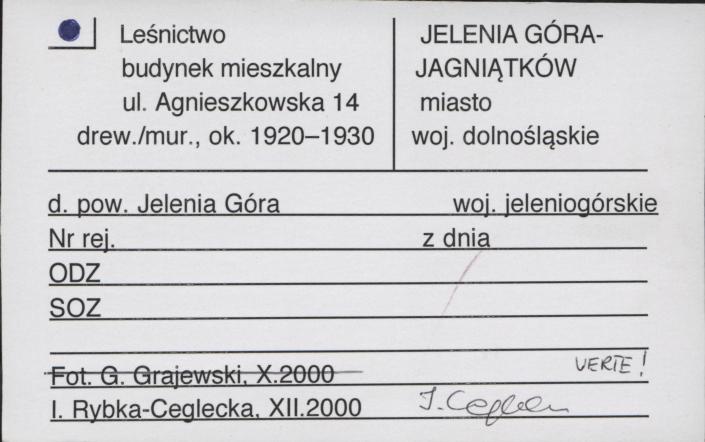 Leśnictwo
budynek mieszkalny
ul. Agnieszkowska 14
drew./mur., ok. 1920–1930
JELENIA GÓRA-
JAGNIĄTKÓW
miasto
woj. dolnośląskie
d. pow. Jelenia Góra woj. jeleniogórskie
Nr rej. z dnia
ODZ
SOZ
VERTE!
Fot. G. Grajewski, X.2000
I. Rybka-Ceglecka, XII.2000